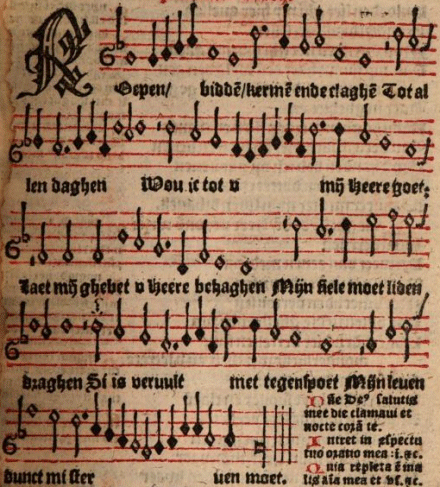 Roepen/ biddē/kermē ende claghē Tot al
len daghen Wou ic tot v mijn heere goet:
Laet mijn ghebet v heere behaghen Mijn siele moet liden
draghen Si is vervult met tegenspoet Mijn leuen
dunct mi ster uen moet.
Dñe De⁹ salutis
mee die clamaui et
nocte corā te.
Intret in ꝯspectu
tuo oratio mea : i. ꝛc.
Quia repleta ē ma
lis aīa mea et vſ. ꝛc.